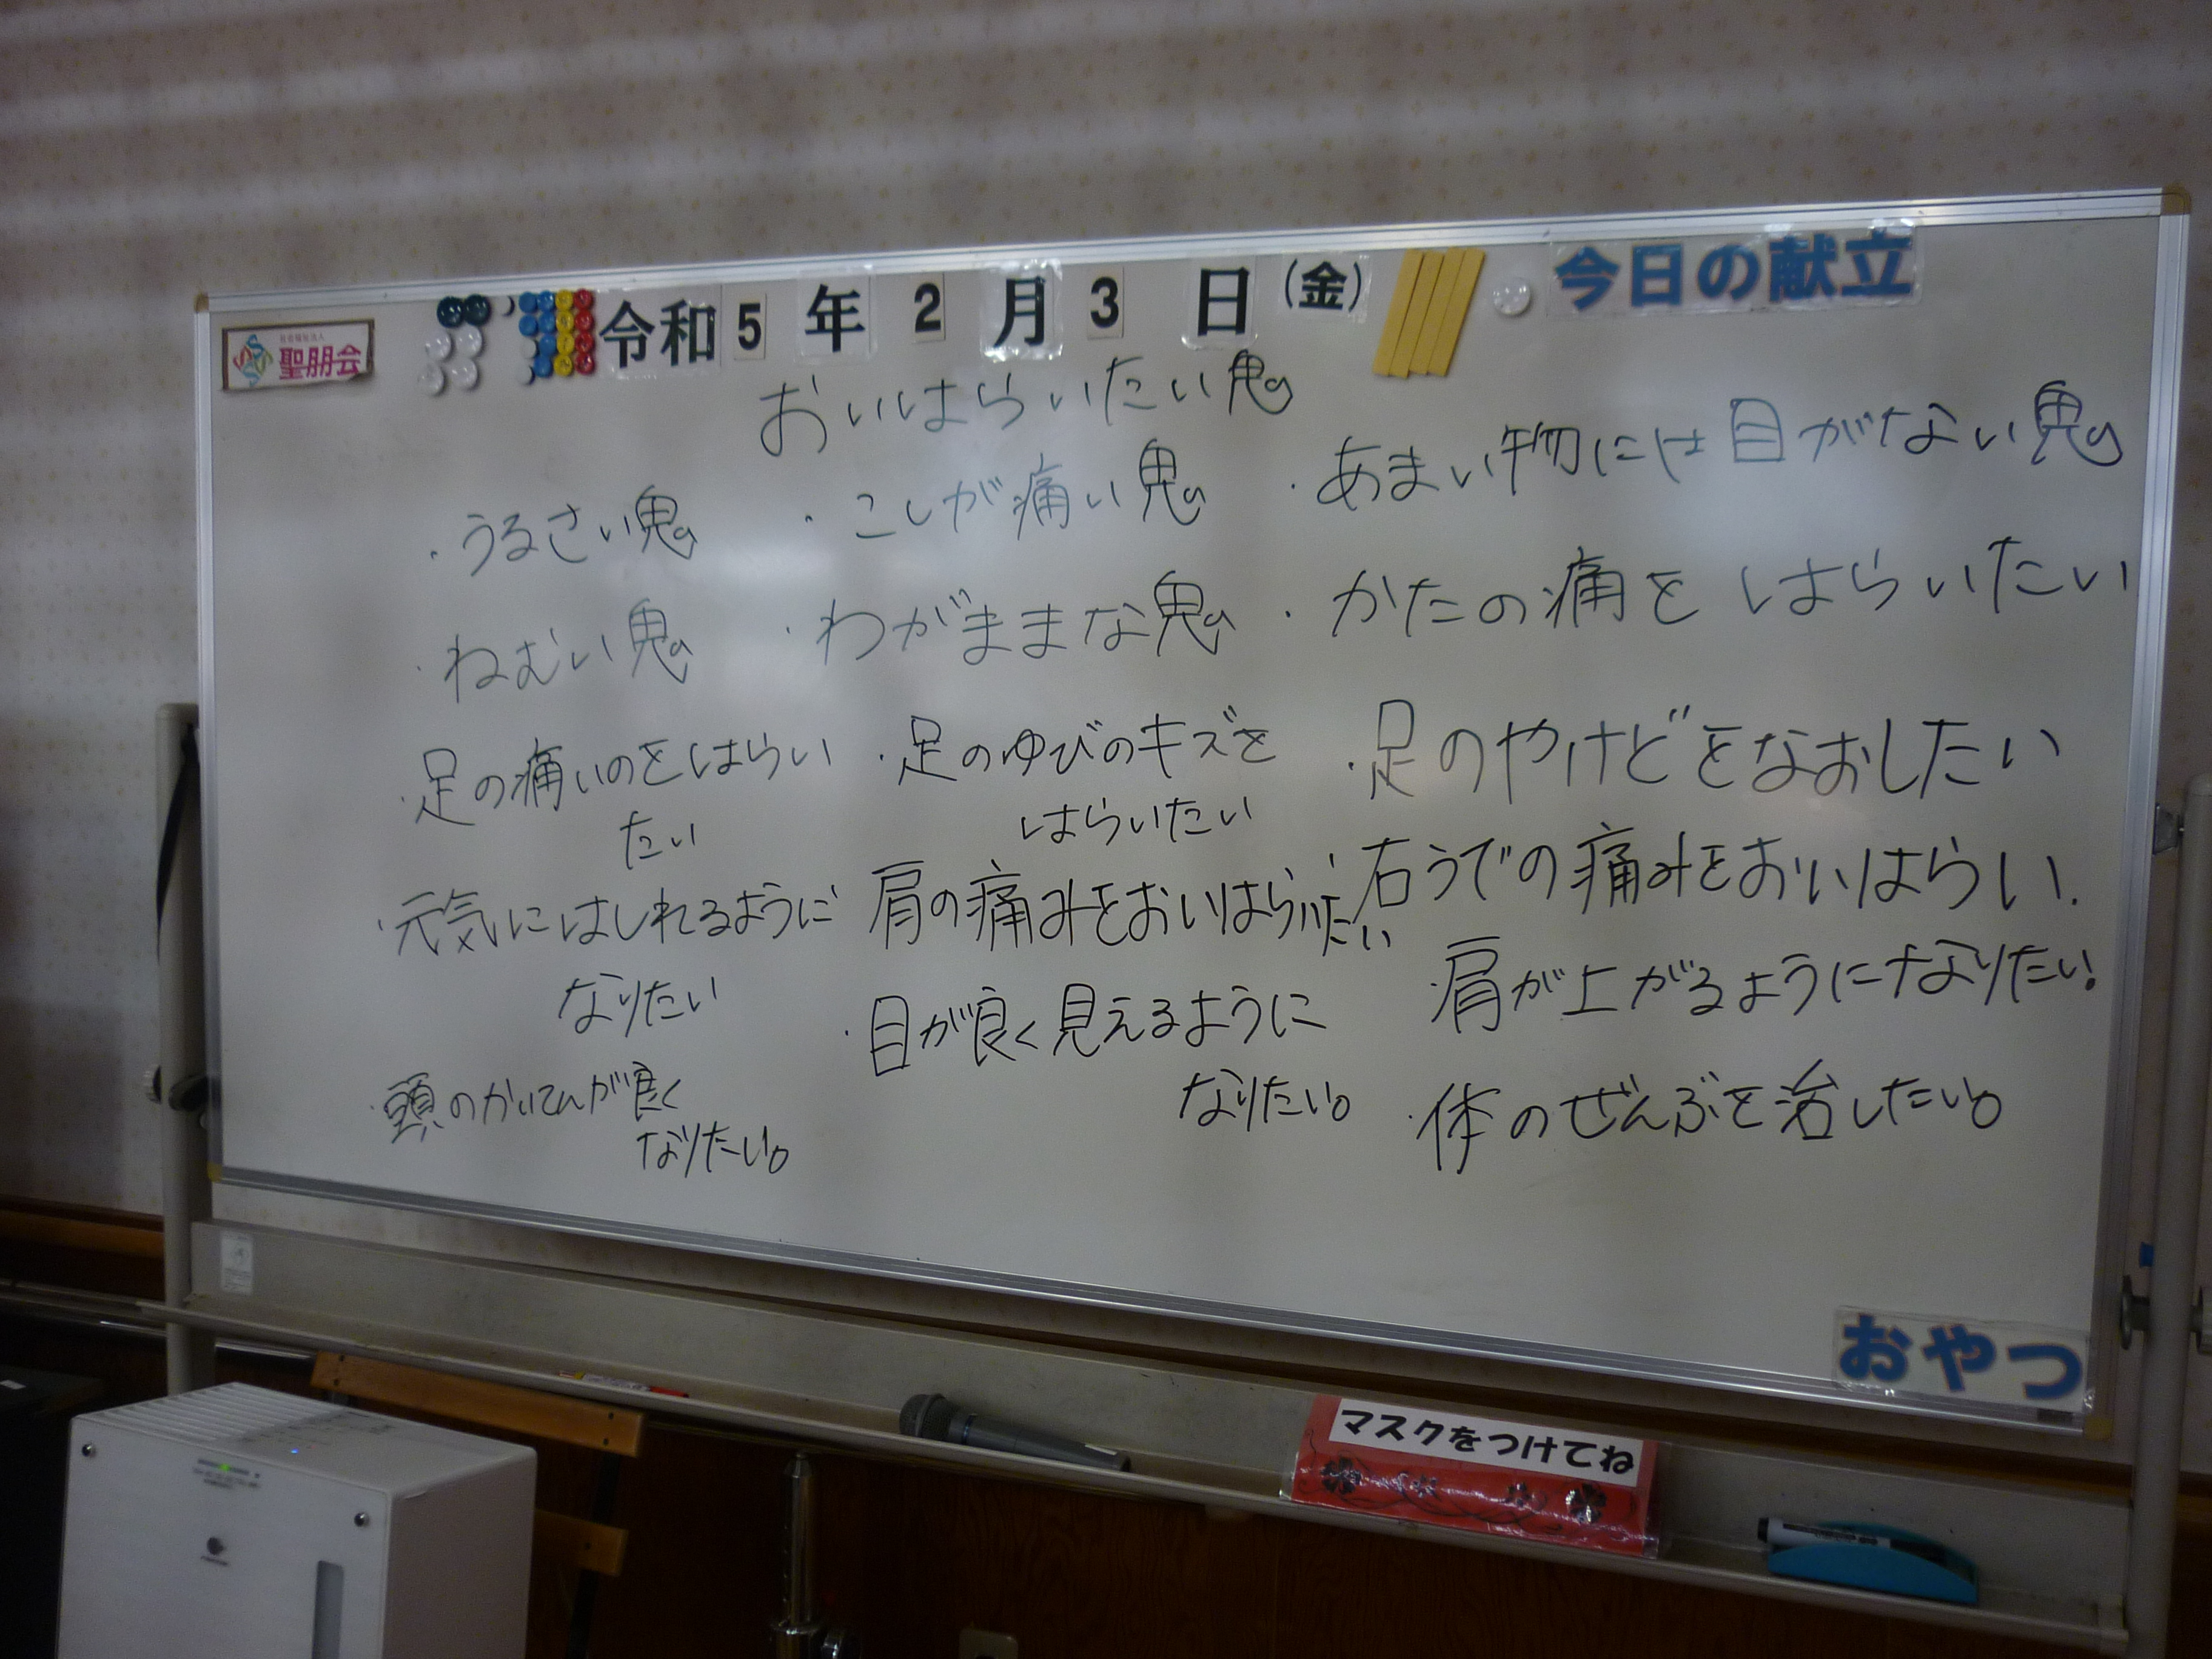 社会福祉法人
聖朋会
令和5年2月3日(金)
今日の献立
おいはらいたい鬼
・うるさい鬼
・こしが痛い鬼
・あまい物には目がない鬼
・ねむい鬼
・わがままな鬼
・かたの痛をはらいたい
・足の痛いのをはらい
たい
・足のゆびのキズを
はらいたい
・足のやけどをなおしたい
・元気にはしれるように
なりたい
肩の痛みをおいはらいたい
・右うでの痛みをおいはらい.
・目が良く見えるように
なりたい。
・肩が上がるようになりたい。
・頭のかいてんが良く
なりたい。
・体のぜんぶを治したい。
おやつ
マスクをつけてね